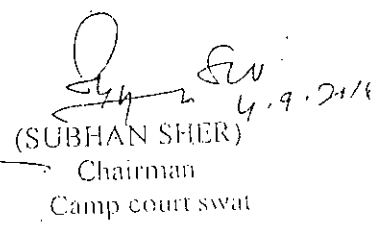 4.9.2018
(SUBHAN SHER)
Chairman
Camp court swat